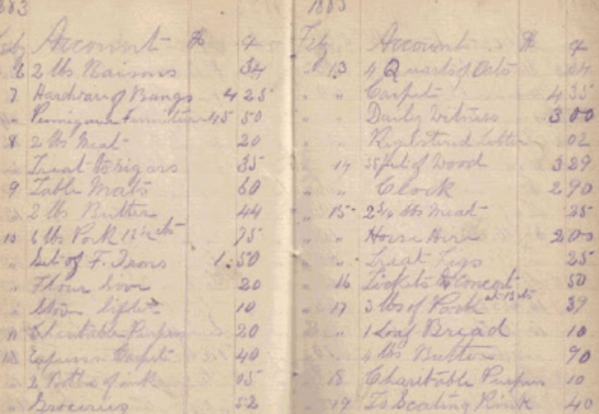 1883
Feby Account $ ¢
6 2 lbs Raisins 34
7 Hardware of Bangs 4 25
" Furniture 45 50
8 2 lbs Meat 20
" Treat to sigars 35
9 Table Mats 60
" 2 lbs Butter 44
10 6 lbs Pork 12½ cts 75
" Set of F. Irons 1.50
" Flour 20
" Stove lifter 10
" Charitable Purposes 20
Carpet 40
" 2 Bottle of ink 05
" Groceries 52
1883
Feby Account $ ¢
" 13 4 Quarts of Oats
" " Carpets 4 35
" " Daily Witness 3 00
" " Registered Letter 02
" 14 of Wood 3 29
" " Clock 2 90
" 15 lbs Meat 25
" " Horse Hire 2 00
" " Treat Figs 25
" 16 Tickets to Concert 50
" 17 3 lbs of Pork at 13 cts 39
" " 1 Loaf Bread 10
" " 4 lbs Butter 90
" 18 Charitable Purposes 10
" 19 To Scating Rink 40